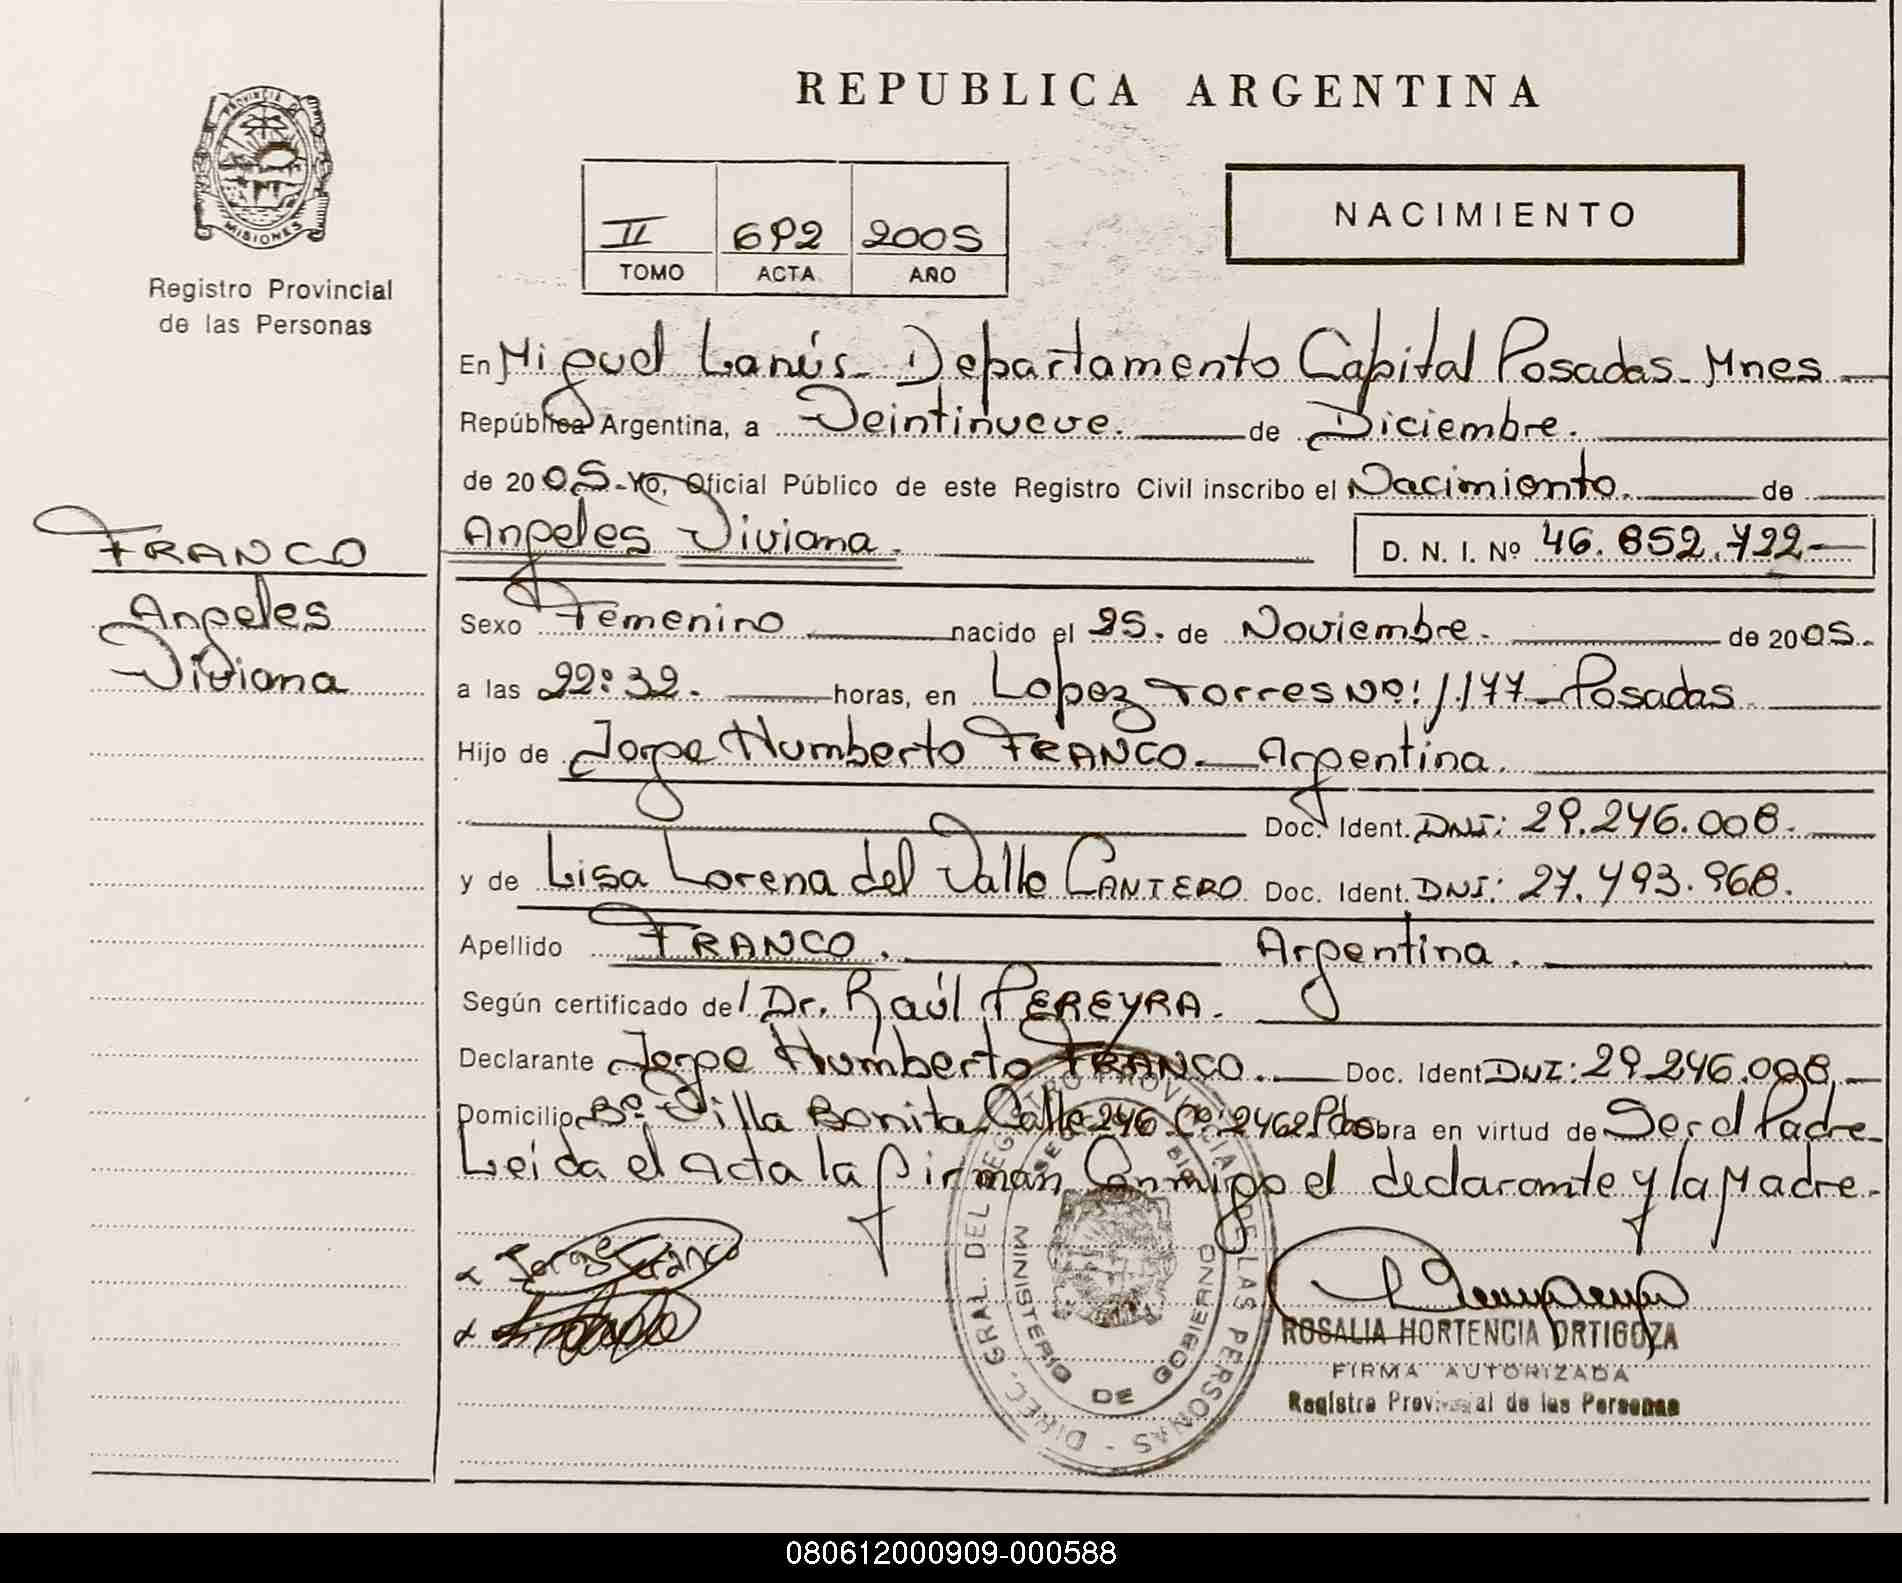 REPUBLICA ARGENTINA
PROVINCIA DE MISIONES
Registro Provincial
de las Personas
II 692 2005
TOMO ACTA AÑO
NACIMIENTO
En Miguel Lanús - Departamento Capital Posadas - Mnes
República Argentina, a Veintinueve. de Diciembre.
de 20 05 - Yo, Oficial Público de este Registro Civil inscribo el Nacimiento. de
Angeles Viviana. D. N. I. Nº 46.852.722
FRANCO
Angeles
Viviana
Sexo Femenino nacido el 25. de Noviembre. de 20 05.
a las 22:32. horas, en Lopez Torres Nº: 1.177 - Posadas
Hijo de Jorge Humberto FRANCO. Argentina.
Doc. Ident. DNI: 29.246.008.
y de Lisa Lorena del Valle CANTERO Doc. Ident. DNI: 27.493.968.
Apellido FRANCO. Argentina.
Según certificado del Dr. Raúl PEREYRA.
Declarante Jorge Humberto FRANCO. Doc. Ident DNI: 29.246.008.
Domicilio Bº. Villa Bonita Calle 246 Cº: 2462 Pdas obra en virtud de Ser el Padre
Leida el Acta la firman Conmigo el declarante y la Madre.
Jorge Franco
DIREC. GRAL. DEL REGISTRO PROVINCIAL DE LAS PERSONAS
MINISTERIO DE GOBIERNO
ROSALIA HORTENCIA ORTIGOZA
FIRMA AUTORIZADA
Registro Provincial de las Personas
080612000909-000588